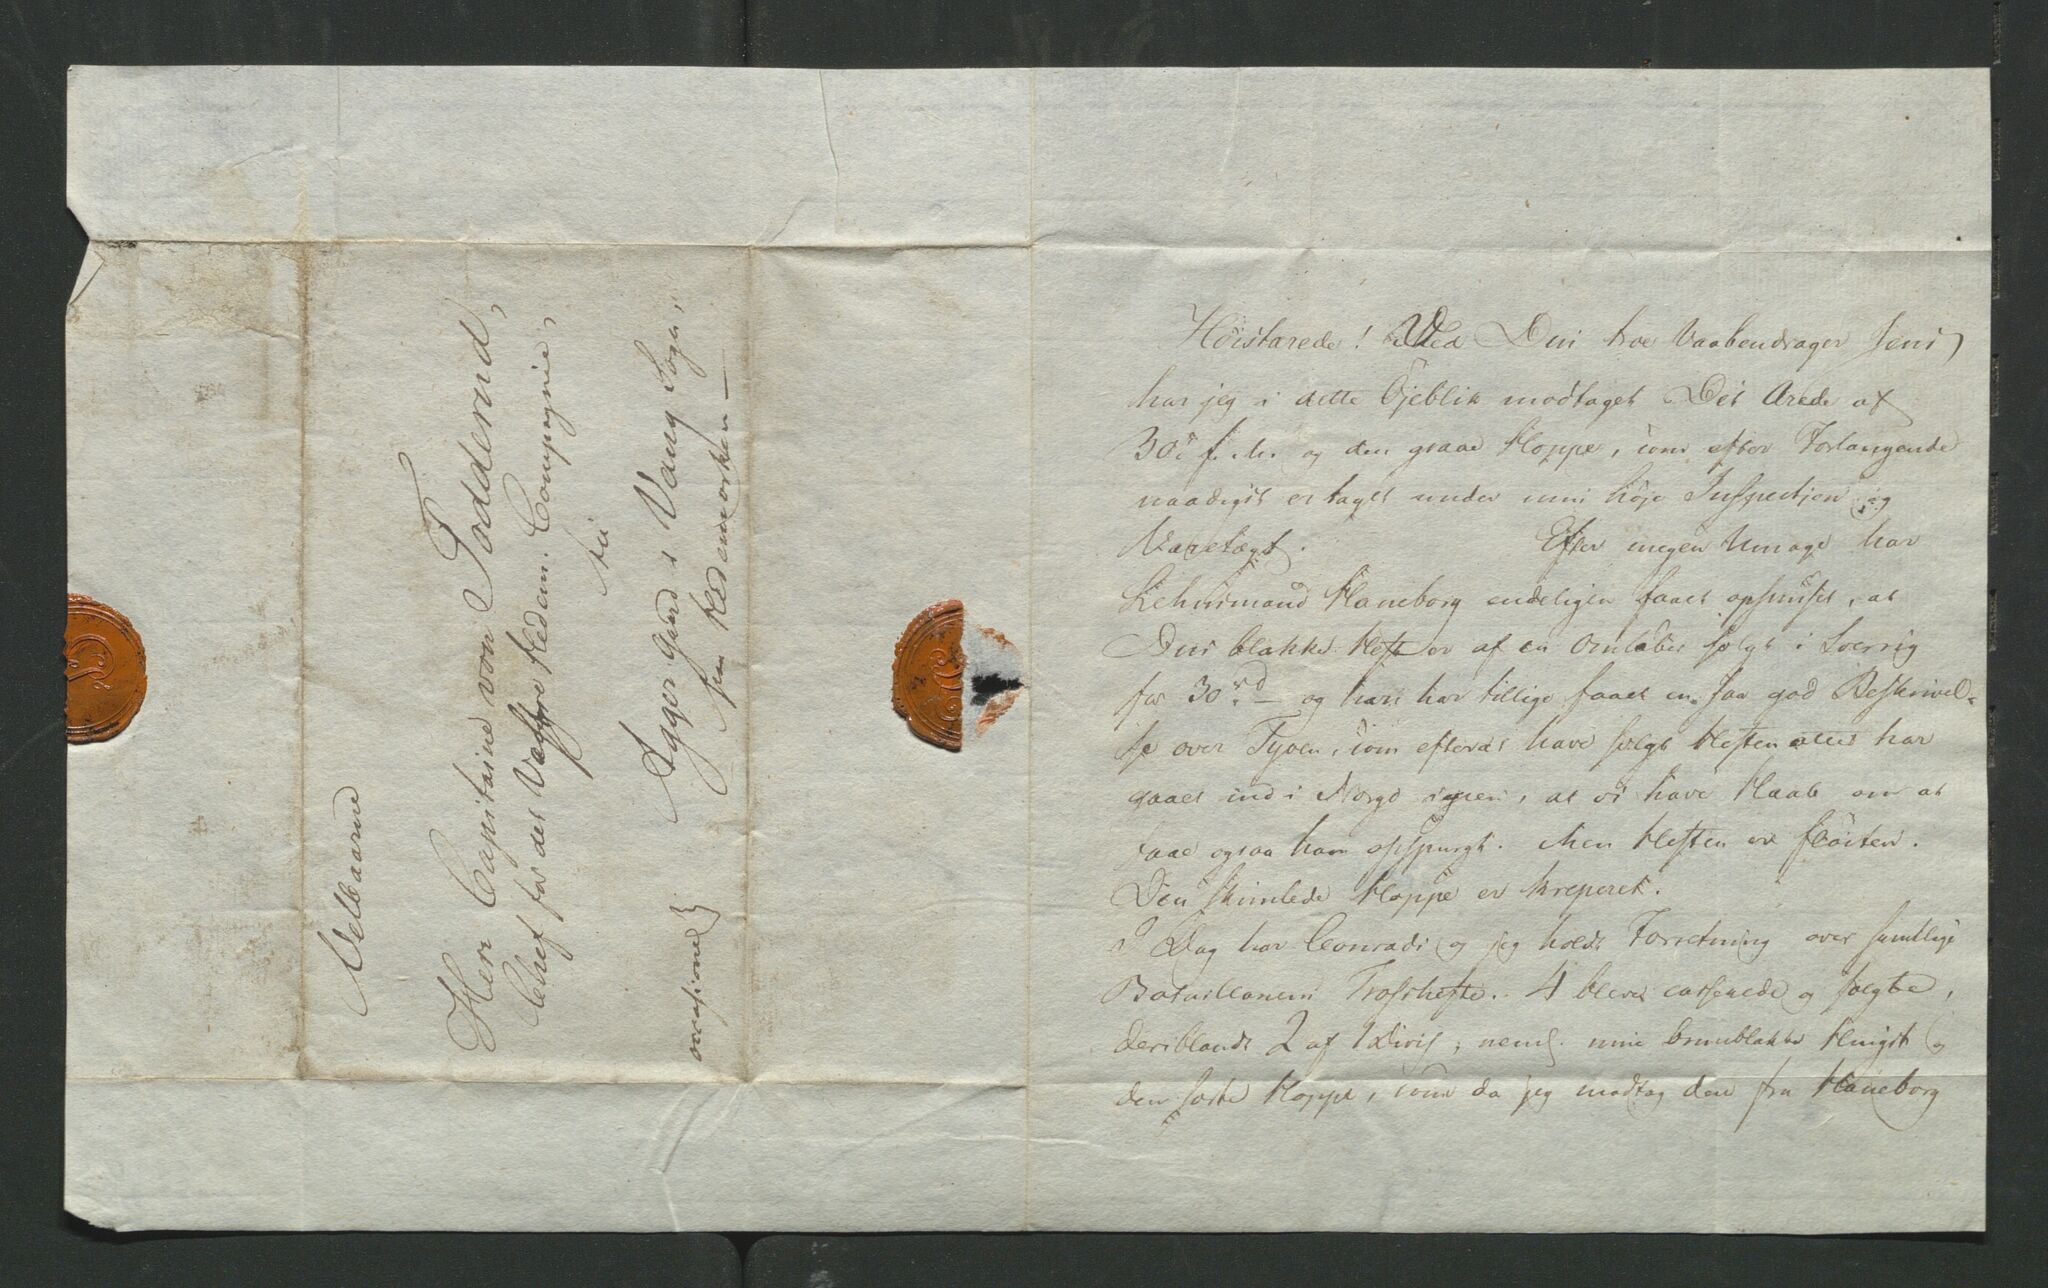 Velbaarne
Herr Capitaine von Todderud,
Chef for det Vaffre Hedem: Compagnie,
til
Agger Gaard i Vang Sogn,
paa Hedemarken —
occasione}
Høistærede! Ved Din troe Vaabendrager Jens
har jeg i dette Øjeblik modtaget Dit Ærede af
30te f. M. og den graae Hoppe, som efter Forlangende
naadigst er taget under min høje Inspection og
Varetægt. Efter megen Umage har
Lehnsmand Haneborg endeligen faaet opsnuset, at
Din blakke Hest er af en Omløber solgt i Sverrig
for 30 rd — og han har tillige faaet en saa god Beskrivel-
se over Tyven, som efterat have solgt Hesten atter har
gaaet ind i Norge igjen, at vi have Haab om at
faae ogsaa ham opspurgt. Men Hesten er fløiten.
Den skimlede Hoppe er kreperet.
I Dag har Conradi og jeg holdt Forretning over samtlige
Bataillonens Trosheste. 4 bleve casserede og solgte,
deriblandt 2 af 1 Divis, neml. min brunblakke Hingst og
den sorte Hoppe, som da jeg modtog den fra Haneborg